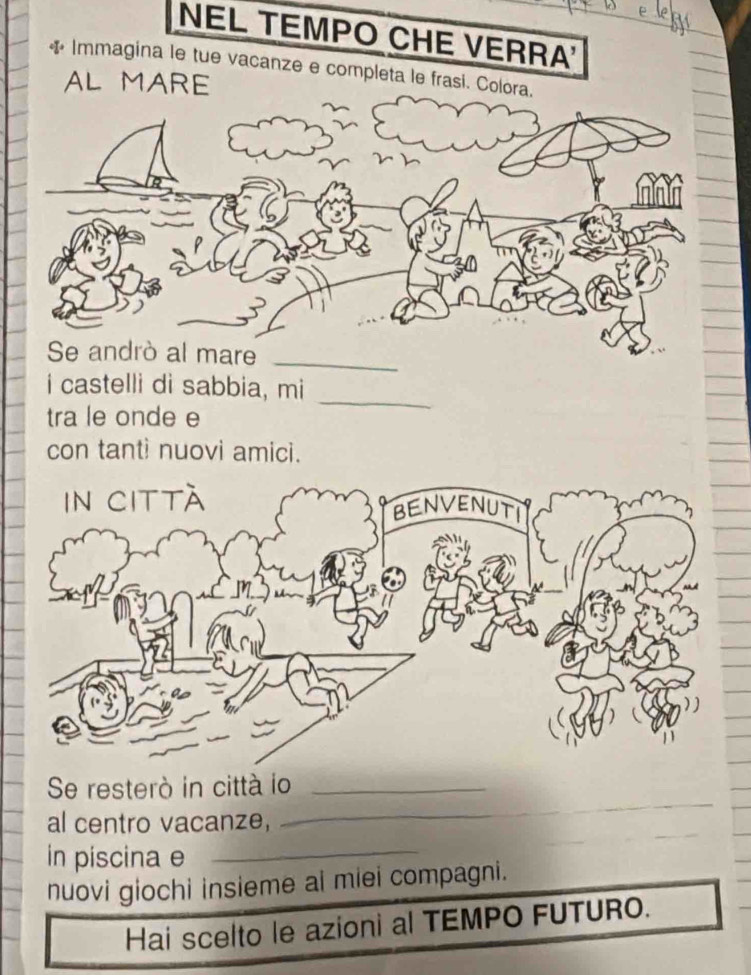 NEL TEMPO CHE VERRA'
Immagina le tue vacanze e completa le frasi. Colora.
AL MARE
Se andrò al mare ________
i castelli di sabbia, mi ________
tra le onde e
con tanti nuovi amici.
IN CITTÀ
BENVENUTI
Se resterò in città io ________
al centro vacanze, ________
in piscina e ________
nuovi giochi insieme ai miei compagni.
Hai scelto le azioni al TEMPO FUTURO.